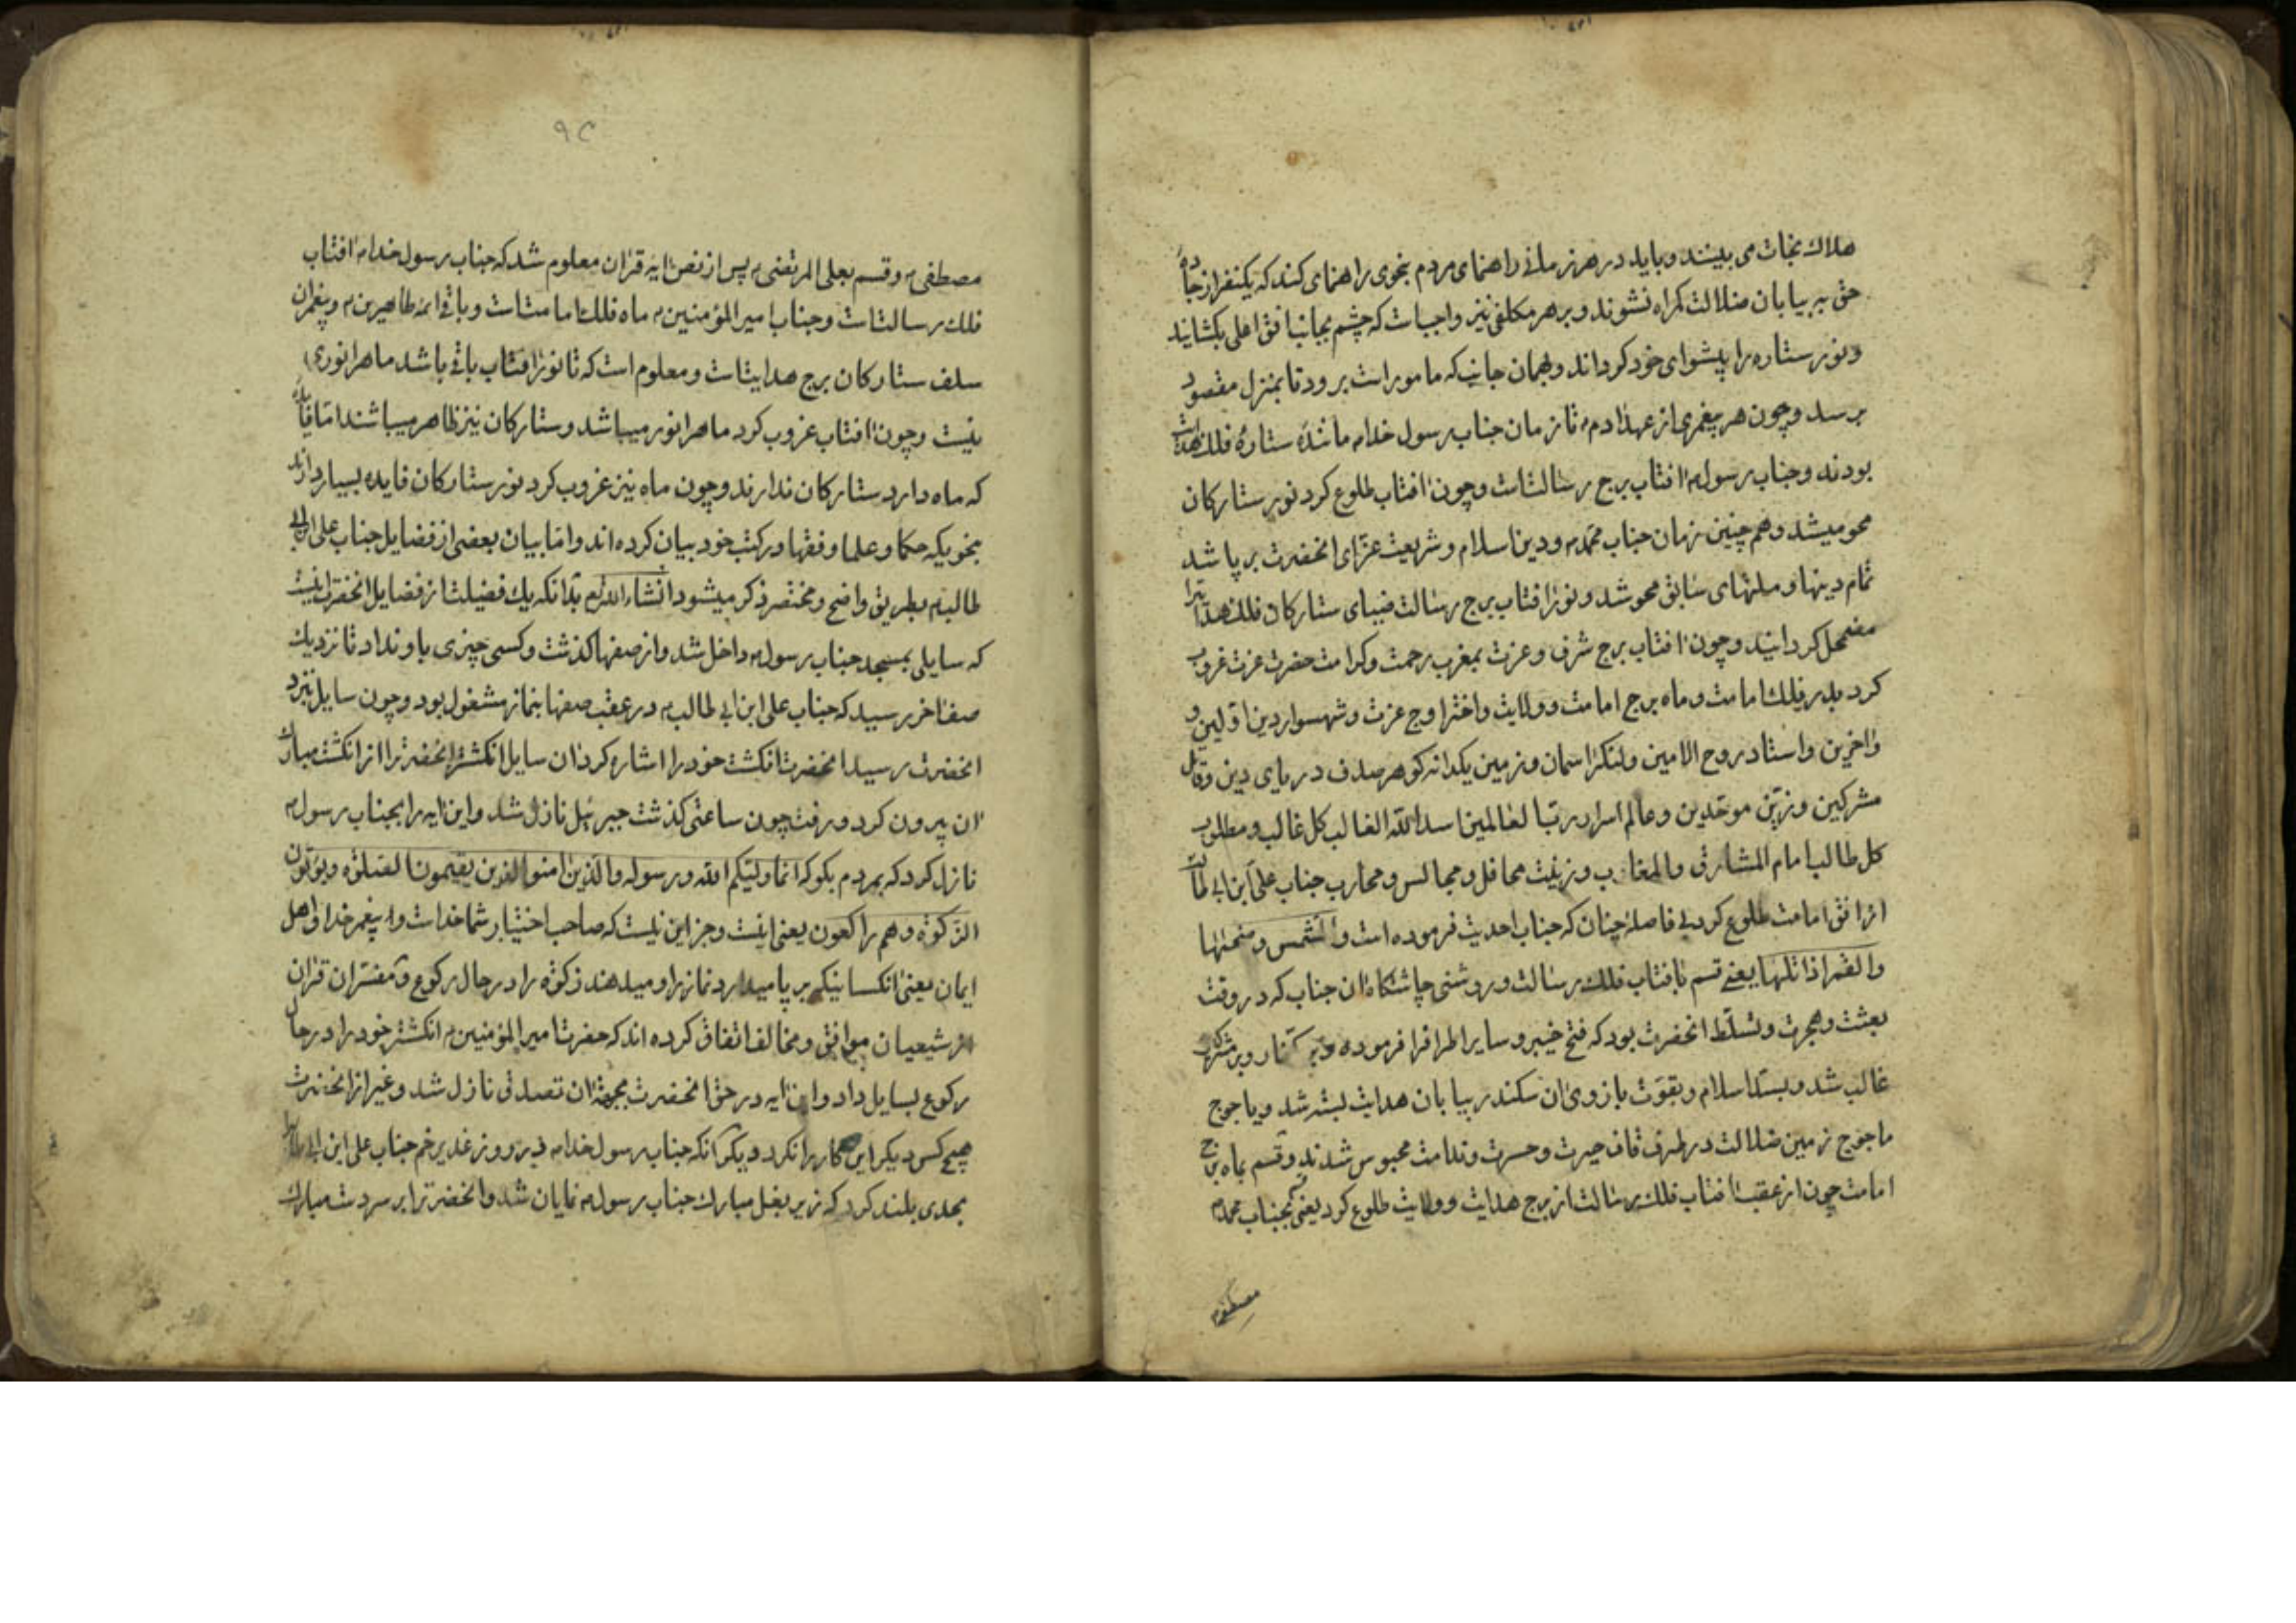 هلاك نجات می بینند و باید در هر زمانی راهنمای مردم بنحوی راهنمای کند که یکنفر از جادهٔ
حق به بیابان ضلالت کمراه نشوند و بر هر مکلفی نیز واجبات که چشم بجانب افق اعلی بکشایند
و نور ستاره را پیشوای خود کرداند و بهمان جانب که مامور است برود تا بمنزل مقصود
برسد و چون هر پیغمبری از عهد ادم تا زمان جناب رسول خدا م مانند ستارهٔ فلك هدایت
بودند و جناب رسول م افتاب برج رسالت است و چون افتاب طلوع کرد نور ستارکان
محو میشد و هم چنین زمان جناب محمد م و دین اسلام و شریعت غرّای انحضرت بر پا شد
تمام دینها و ملتهای سابق محو شد و نور افتاب برج رسالت ضیای ستارکان فلك هدایترا
مضمحل کردانید و چون افتاب برج شرف و عزت بمغرب رحمت و کرامت حضرت عزت غروب
کرد بدر فلك امامت و ماه برج امامت و ولایت و اختر اوج عزت و شهسوار دین اولین و
واخرین و استاد روح الامین و لنکر اسمان و زمین یکدانه کوهر صدف دریای دین و قاتل
مشرکین و زین موحدین و عالم اسرار رب العالمین اسد الله الغالب کل غالب و مطلوب
کل طالب امام المشارق و المغارب و زینت محافل و مجالس و محارب جناب علی ابن ابی طالب
از افق امامت طلوع کرد بی فاصله چنان که جناب احدیت فرموده است والشمس وضحیها
والقمر اذا تلیها یعنی قسم بافتاب فلك رسالت و روشنی چاشتکاه ان جناب که در وقت
بعثت و هجرت و تسلط انحضرت بود که فتح خیبر و سایر اطراف را فرموده و بر کفار و بر مشرکان
غالب شد و بسد اسلام و بقوت بازوی ان سکندر بیابان هدایت بسته شد و یاجوج
ماجوج زمین ضلالت در طرف قاف حیرت و حسرت و ندامت محبوس شدند و قسم بماه برج
امامت چون از عقب افتاب فلك رسالت از برج هدایت و ولایت طلوع کرد یعنی قسم بجناب محمد م
مصطفی م
٩٢
مصطفی م و قسم بعلی المرتضی م پس از نص ایه قران معلوم شد که جناب رسول خدا م افتاب
فلك رسالت است و جناب امیر المؤمنین م ماه فلك امامت است و باقی ائمه طاهرین م و پیغمبران
سلف ستارکان برج هدایت است و معلوم است که تا نور افتاب باقی باشد ماه را نوری
نیست و چون افتاب غروب کرد ماه را نور میباشد و ستارکان نیز ظاهر میباشند اما فایدهٔ
که ماه دارد ستارکان ندارند و چون ماه نیز غروب کرد نور ستارکان فایده بسیار دارند
بنحویکه حکما و علما و فقها در کتب خود بیان کرده اند و اما بیان بعضی از فضایل جناب علی ابن ابی
طالب م بطریق واضح و مختصر ذکر میشود انشاء الله تعم بدانکه یك فضیلت از فضایل انحضرت اینست
که سایلی بمسجد جناب رسول م داخل شد و از صفها کذشت و کسی چیزی باو نداد تا نزدیك
صف اخر رسید که جناب علی ابن ابی طالب م در عقب صفها بنماز مشغول بود و چون سایل نزد
انحضرت رسید انحضرت انکشت خود را اشاره کرد ان سایل انکشتر انحضرترا از انکشت مبارك
ان بیرون کرد و رفت چون ساعتی کذشت جبرئیل نازل شد و این ایه را بجناب رسول م
نازل کرد که بمردم بکو که انما ولیکم الله ورسوله والذین امنوا الذین یقیمون الصلوة ویؤتون
الزکوة وهم راکعون یعنی اینست و جز این نیست که صاحب اختیار شما خدا است و پیغمبر خدا و اهل
ایمان یعنی انکسانیکه بر پا میدارد نماز را و میدهند زکوة را در حال رکوع و مفسران قران
از شیعیان موافق و مخالف اتفاق کرده اند که حضرت امیر المؤمنین م انکشتر خود را در حال
رکوع بسایل داد و این ایه در حق انحضرت بجهة ان تصدق نازل شد و غیر از انحضرت
هیچ کس دیکر این کار را نکرد دیکر انکه جناب رسول خدا م در روز غدیر خم جناب علی ابن ابی طالب را
بحدی بلند کرد که زیر بغل مبارك جناب رسول م نمایان شد و انحضرترا بر سر دست مبارك